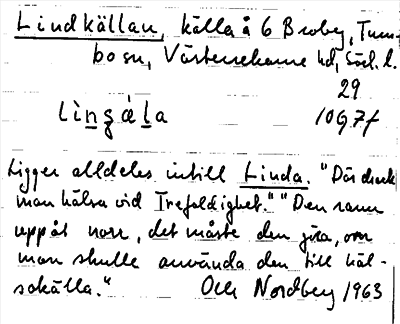 Lindkällan, källa å 6 Broby, Tuna-
bo sn, Västerrekarne hd, Söd. l.
29
lìngǻla 10G7f
Ligger alldeles intill Linda. "Där drack
man hälsa vid Trefaldighet." "Den rann
uppåt norr, det måste den göra, om
man skulle använda den till häl-
sokälla." Olle Nordberg 1963